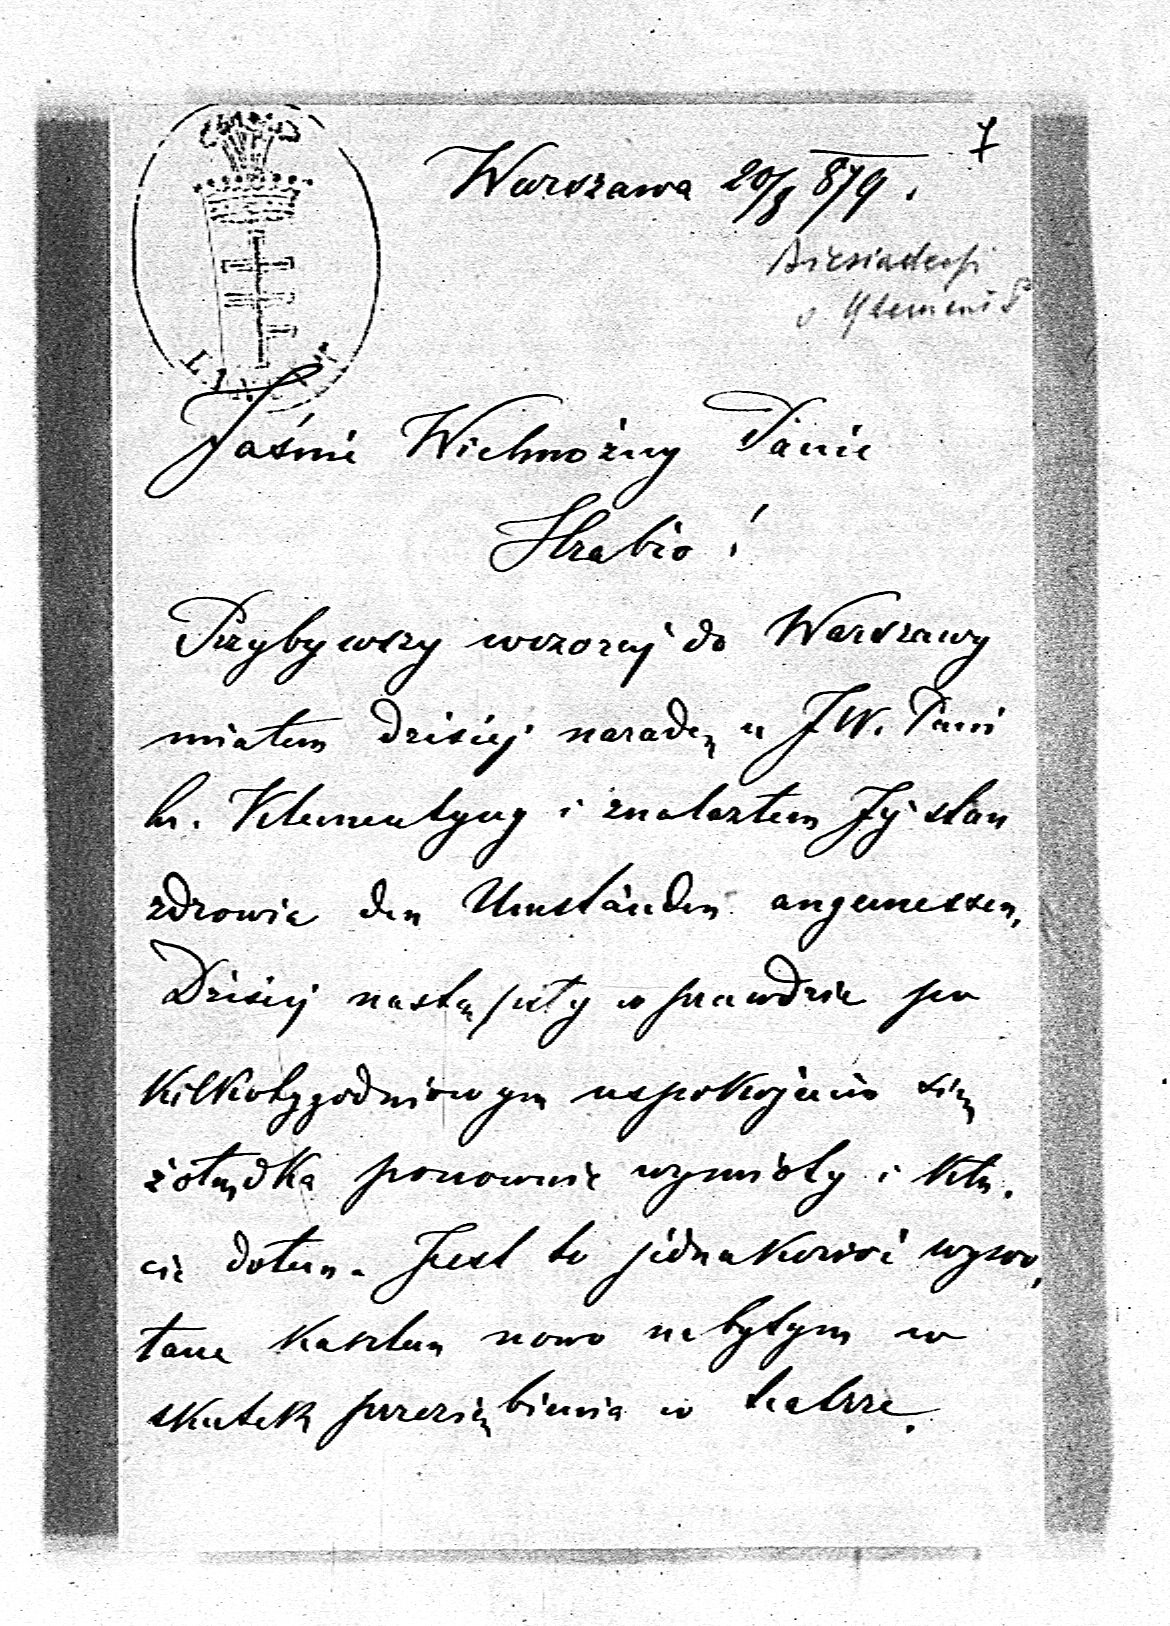 7
Warszawa 20/3 879.
Jaśnie Wielmożny Panie
Hrabio!
Przybywszy wczoraj do Warszawy
miałem dzisiej naradę u JW. Pani
hr. Klementyny i znalazłem Jej stan
zdrowia den Umständen angemessen,
Dzisiej nastąpiły wprawdzie po
kilkotygodniowym uspokojeniu się
żołądka ponownie wymioty i kłó-
cie dołem. Jest to jednakowoż wywo,
łane kaszlem nowo nabytym w
skutek przeziębienia w teatrze.